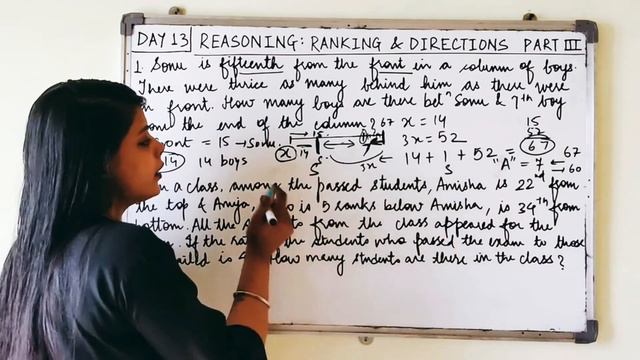 DAY 13 REASONING: RANKING & DIRECTIONS PART III
1. Sonu is fifteenth from the front in a column of boys.
There were thrice as many behind him as there were
in front. How many boys are there betn Sonu & 7th boy
from the end of the column? 67 x = 14 15
ont = 15 → Sonu 15 3x = 52 52
14 14 boys x 14 S 7 3x 14 + 1 + 52 67
S "A" = 7 ← 67
← 60
n a class, among the passed students, Anisha is 22nd from
the top & Anuja, who is 5 ranks below Anisha, is 34th from
bottom. All the from the class appeared for the
If the students who passed the exam to those
ailed is How many students are there in the class?